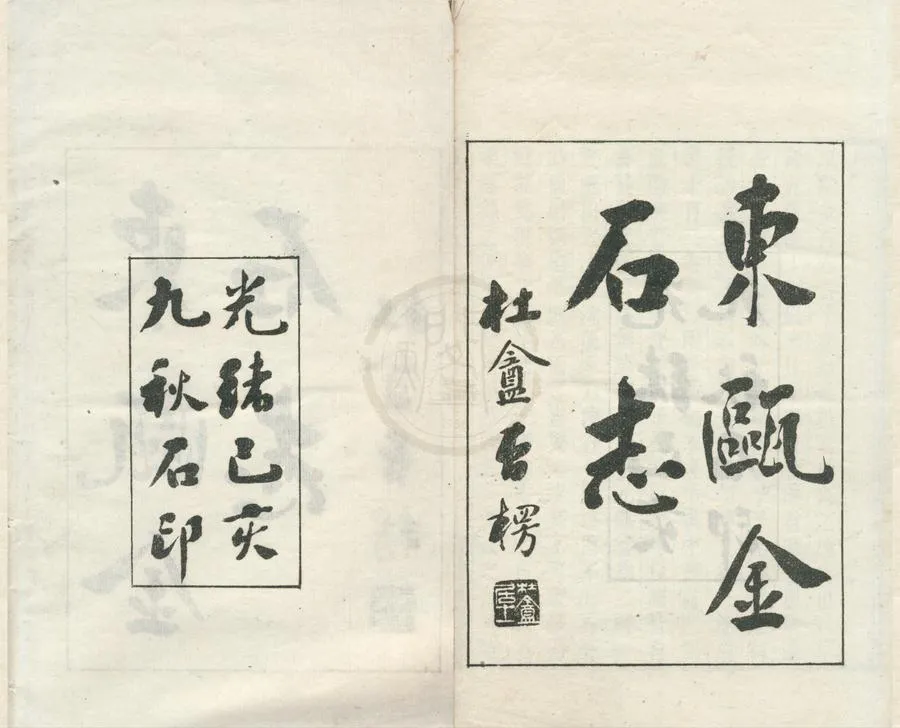 東甌金
石志
杜盦
杜盦居士
光緒己亥
九秋石印